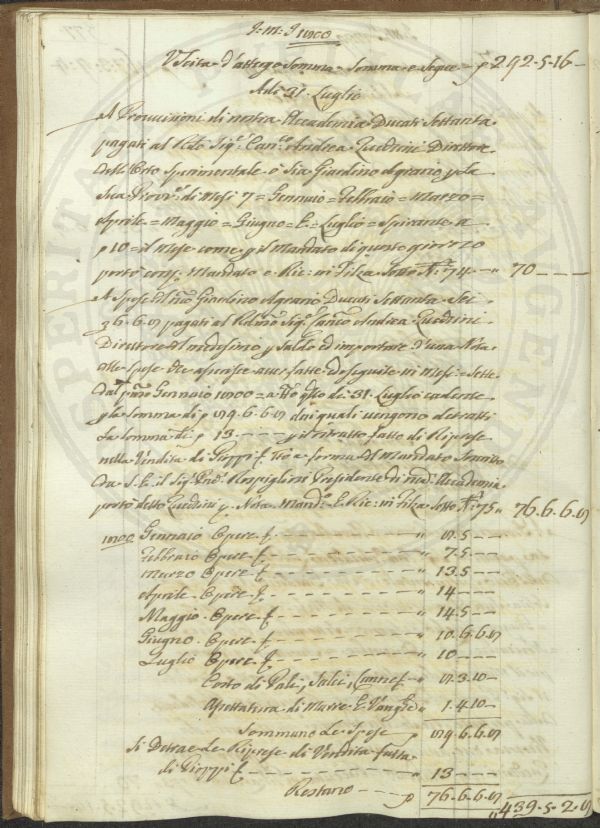 J: m: J 1800
Uscita d'attergo Somma Somma e Segue – p 292 - 5 - 16 –
Adi 31. Luglio
A Provvisioni di nostra Accademia Ducati Settanta
pagati al Rdo Sigr. Canco. Andrea Zucchini Direttore
dell'Orto Sperimentale ò Sia Giardino Agrario p la
Sua Provv. di Mesi 7 = Gennaio = Febbraio = Marzo =
Aprile = Maggio = Giugno = E = Luglio = Spirante a
p 10 = il Mese come p il Mandato di questo giorno
portò cong. Mandato e Ric: in Filza Sotto No. 74 – " 70 – – –
A Spese Giardino Agrario Ducati Settanta Sei
pagati al Sigr. Canco Andrea Zucchini
Direttore medesimo p Saldo ed importare d'una Nota
alle Spese fatte in Mesi Sette
dal Gennaio 1800 = a tto 31. Luglio cadente
p la Somma di p 89. 6. 6. 8 dai quali vengono detratti
La Somma di p 13. – – – p il ritratto fatto di Riprese
nella Vendita di a forma del Mandato
S. E. il Sigr. Rospigliosi Presidente di Accademia
portò detto Zucchini p. Nota Mando. E Ric: in Filza Sotto No. 75 " 76. 6. 6. 8
1800 Gennaio Opere f. – – – " 8. 5 – –
Febbraio Opere f. – – – " 7. 5 – –
Marzo Opere f. – – – " 13. 5 – –
Aprile Opere f. – – – " 14 – – –
Maggio Opere f. – – – " 14. 5 – –
Giugno Opere f. – – – " 10. 6. 6. 8
Luglio Opere f. – – – " 10 – – –
Costo di Pali, Salci, Canne f – " 8. 3. 10 –
di Marre E Vanghe " 1. 4. 10 –
Sommano Le Spese p 89. 6. 6. 8
Si Detrae Le Riprese di Vendita fatta
di f – – – 13 – – –
Restano – – p 76. 6. 6. 8
" 439. 5. 2. 8